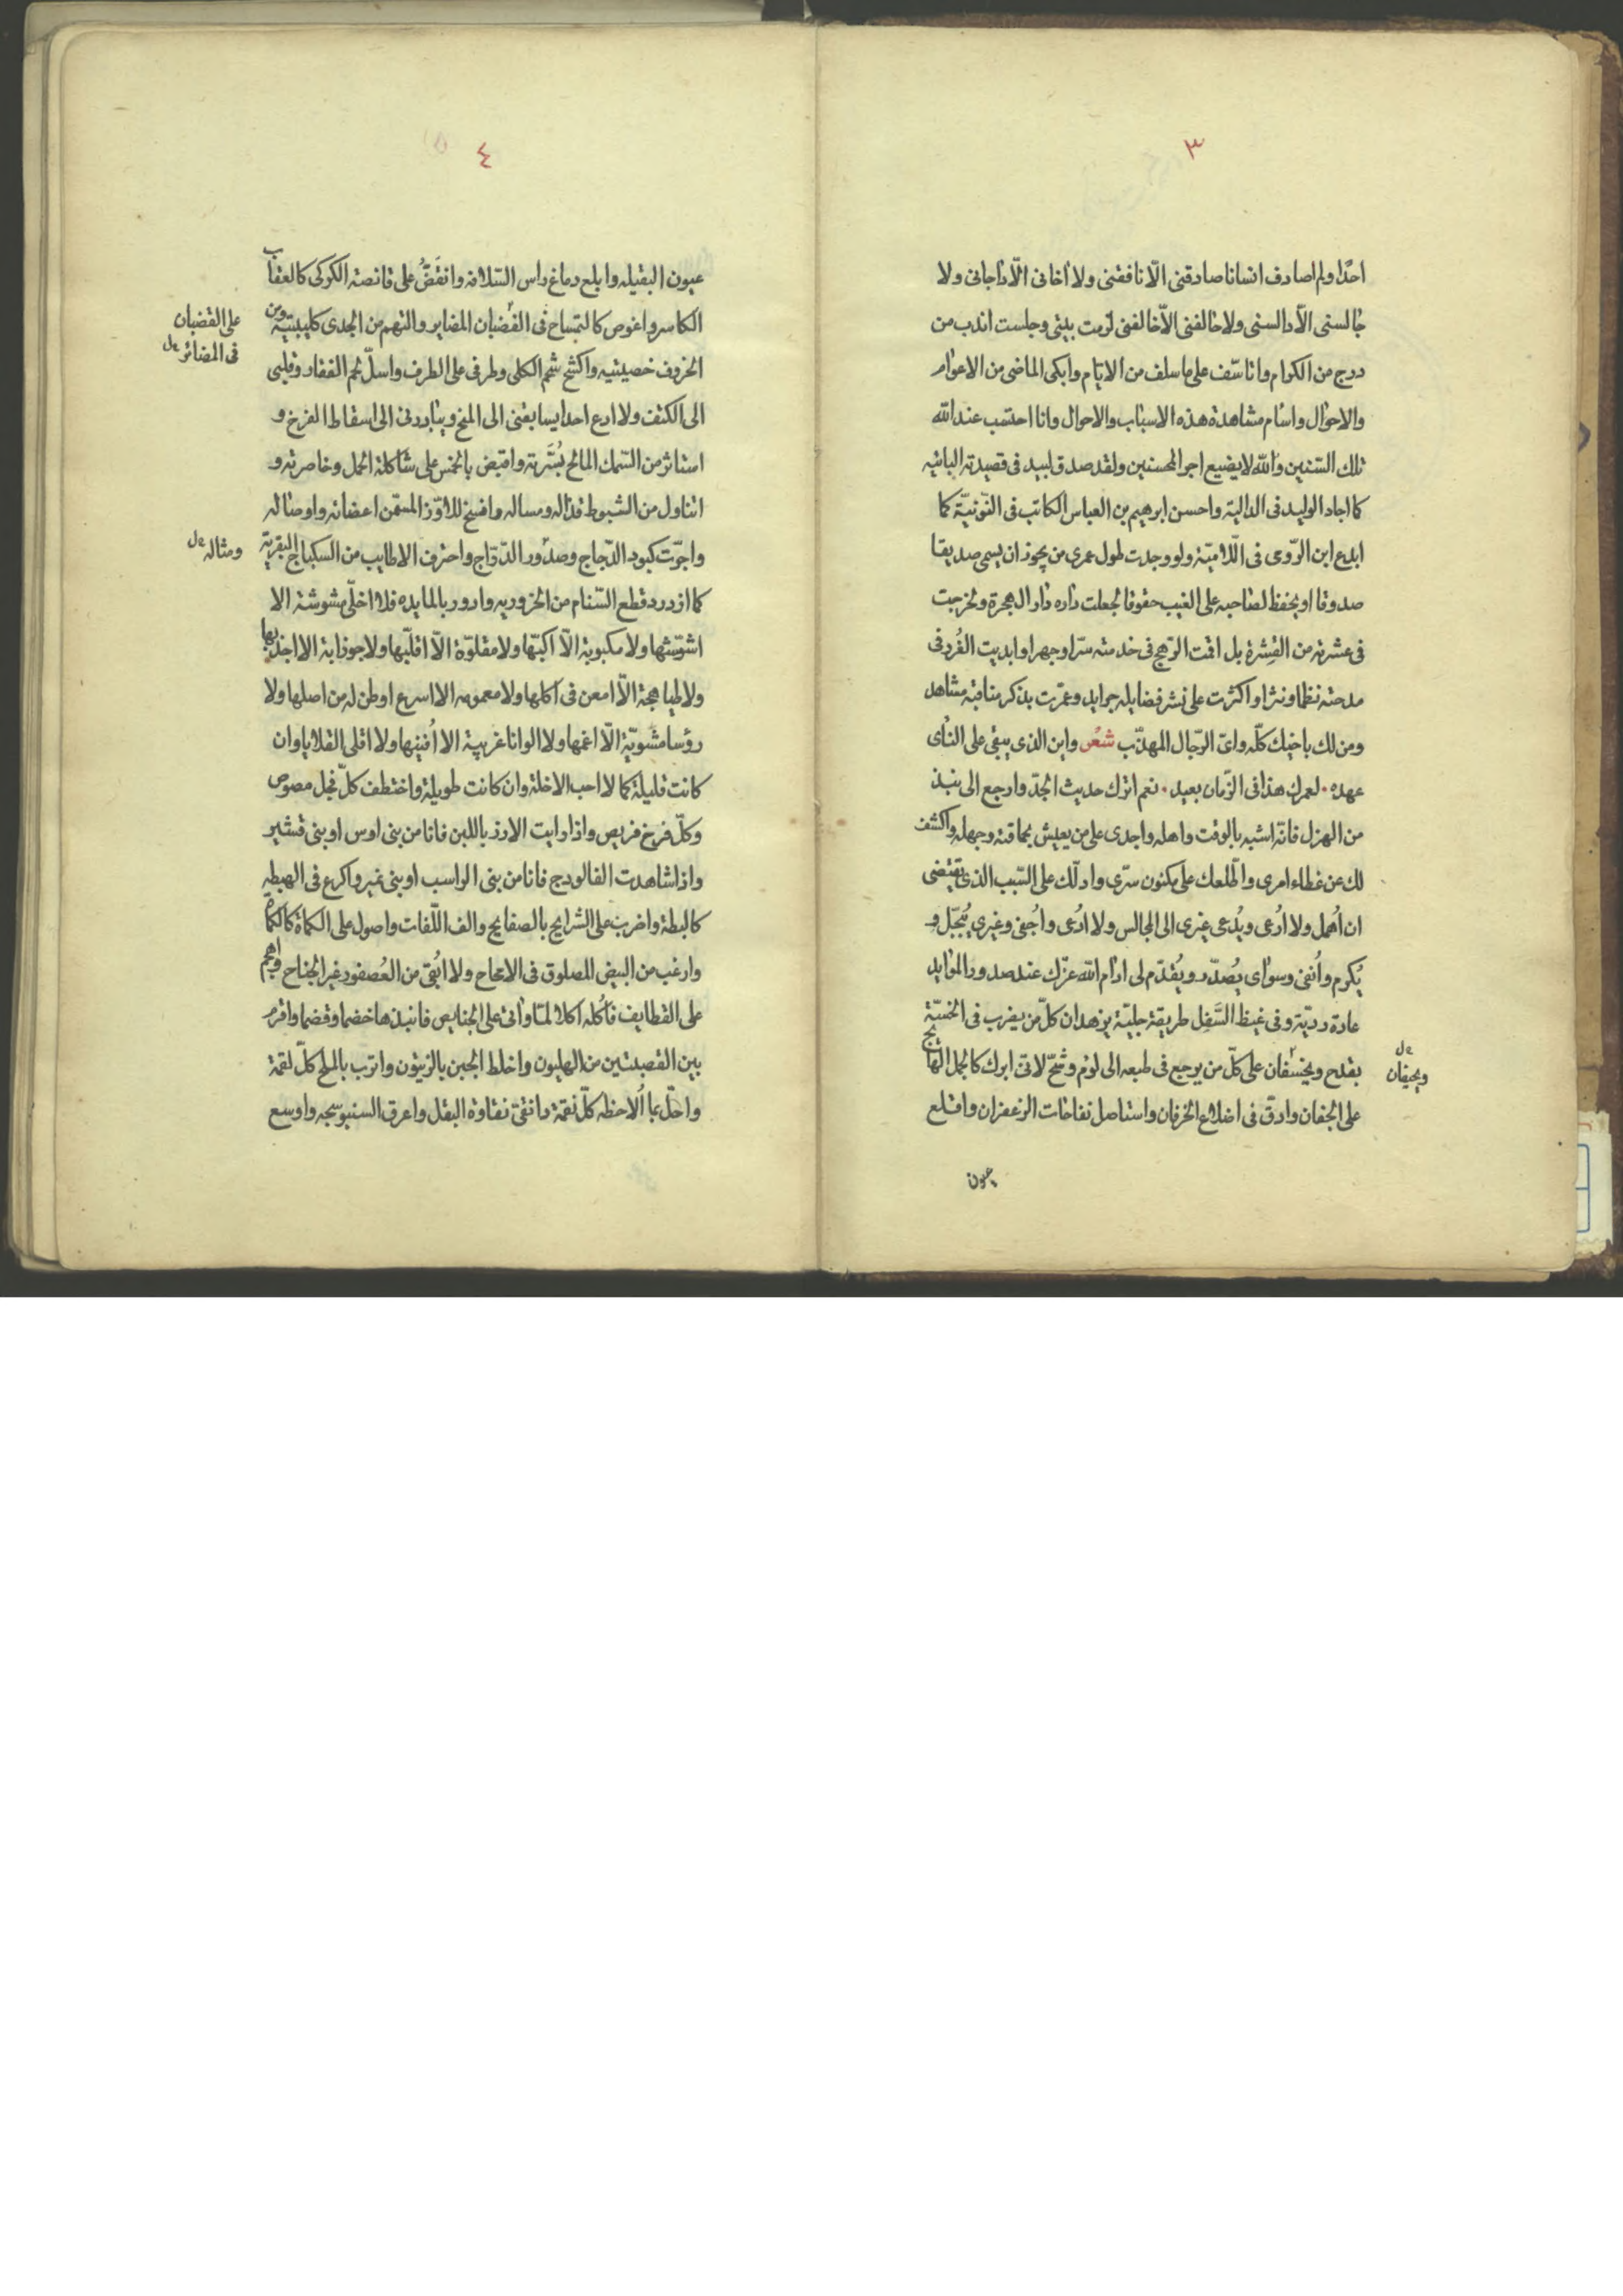 ٣
احدًا ولم اصادف انسانا صادقنى الّا نافقنى ولا اخانى الّا داجانى ولا
جالسنى الّا دالسنى ولا حالفنى الّا خالفنى لزمت بيتى وجلست اندب من
درج من الكرام واتاسّف على ما سلف من الايّام وابكى الماضى من الاعوام
والاحوال واسام مشاهدة هذه الاسباب والاحوال وانا احتسب عند الله
تلك السّنين والله لا يضيع اجر المحسنين ولقد صدق لبيد فى قصيدته البائيه
كما اجاد الوليد فى الداليّة واحسن ابرهيم بن العباس الكاتب فى النّونيّة كما
ابدع ابن الرّومى فى اللّاميّة ولو وجدت طول عمرى من يجوز ان يسمى صديقا
صدوقا او يحفظ لصاحبه على الغيب حقوقا لجعلت داره دار الهجرة ولخرجت
فى عشرته من القشرة بل اقمت الرّهج فى خدمته سرّا وجهرا وابديت الغُرر فى
مدحته نظما ونثرا واكثرت على نشر فضايله جرايد وعمّرت بذكر مناقبه مشاهد
ومن لك باخيك كلّه واىّ الرّجال المهذّب شعر واين الذى يبقى على النأى
عهده . لعمرك هذا فى الزّمان بعيد . نعم اترك حديث الجدّ وارجع الى نبذ
من الهزل فانّه اشبه بالوقت واهله واجدى على من يعيش بحماقته وجهله واكشف
لك عن غطاء امرى واطّلعك على مكنون سرّى وادلّك على السّبب الذى يقتضى
ان اُهمل ولا اُدعى ويُدعى غيرى الى المجالس ولا ادُعى واُجفى وغيرى يُبجّل و
يُكرم واُنفى وسواى يُصدّر ويُقدّم لى ادام الله عزّك عند صدور الموايد
عادة رديّة وفى غيظ السَّفِل طريقة جليّة يزهدان كلّ من يضرب فى الخسّة
بقدح ويخسفان على كلّ من يرجع فى طبعه الى لؤم وشحّ لانى ابرك كالجمل الهائج
ويحيفان
على الجفان وادقّ فى اضلاع الخرفان واستاصل نفاخات الزعفران واقلع
عيون
٤
عيون البقيله وابلع دماغ راس السّلافه وانقَضُّ على قانصة الكركى كالعقاب
الكاسر واغوص كالتمساح فى القضبان المضاير والتهم من الجدى كليتيّه ومن
على القضبان
فى المضائر
الخروف خصيتيه واكشح شحم الكلى وطرفى على الطرف واسلّ لحم الفقار وقلبى
الى الكتف ولا ادع احدا يسابقنى الى المخ ويبادرنى الى اسقاط الفرخ و
استاثر من السّمك المالح بُسّرته واقبض بالخمس على شاكلة الحمل وخاصرته و
اتناول من الشبوط قذاله ومساله وافسخ للاوّز المسمّن اعضائه واوصاله
ومثاله
واجوّت كبود الدّجاج وصدُور الدّرّاج واحترف الاطايب من السكباج البقريّة
كما ازدرد قطع السّنام من الجزوريه وادور بالمايده فلا اخلّى مشوشة الا
اشوّشها ولا مكبوبة الّا اكبّها ولا مقلوّة الّا اقلّبها ولا جوذابة الا اجذبها
ولا طباهجة الّا امعن فى اكلها ولا معمومه الا اسرع اوطن له من اصلها ولا
رؤسا مشويّة الّا اغمها ولا الوانا غريبة الا اُفنيها ولا اقلى القلايا وان
كانت قليلة كما لا احب الاخلة وان كانت طويلة واختطف كلّ فجل مصوص
وكلّ فرخ فريص واذا رايت الارز باللبن فانا من بنى اوس او بنى قشير
واذا شاهدت الفالودج فانا من بنى الراسب او بنى نمير واكرع فى الهبطه
كالبطة واضرب على الشرايح بالصفايح والف اللّفات واصول على الكماة كالكماة
وارغب من البيض المصلوق فى الامحاح ولا ابُقى من العُصفور غير الجناح واهجم
على القطايف فاكُله اكلا لمّا وآتى على الخبايص فانبذها خضما وقضما واقرم
بين القصبتين من الهليون واخلط الجبن بالزيتون واترب بالملح كلّ لقمة
واحلّ بما اُلاحظه كلّ نقمة وانتقىّ نقاوة البقل واعرق السنبوسجه واوسع